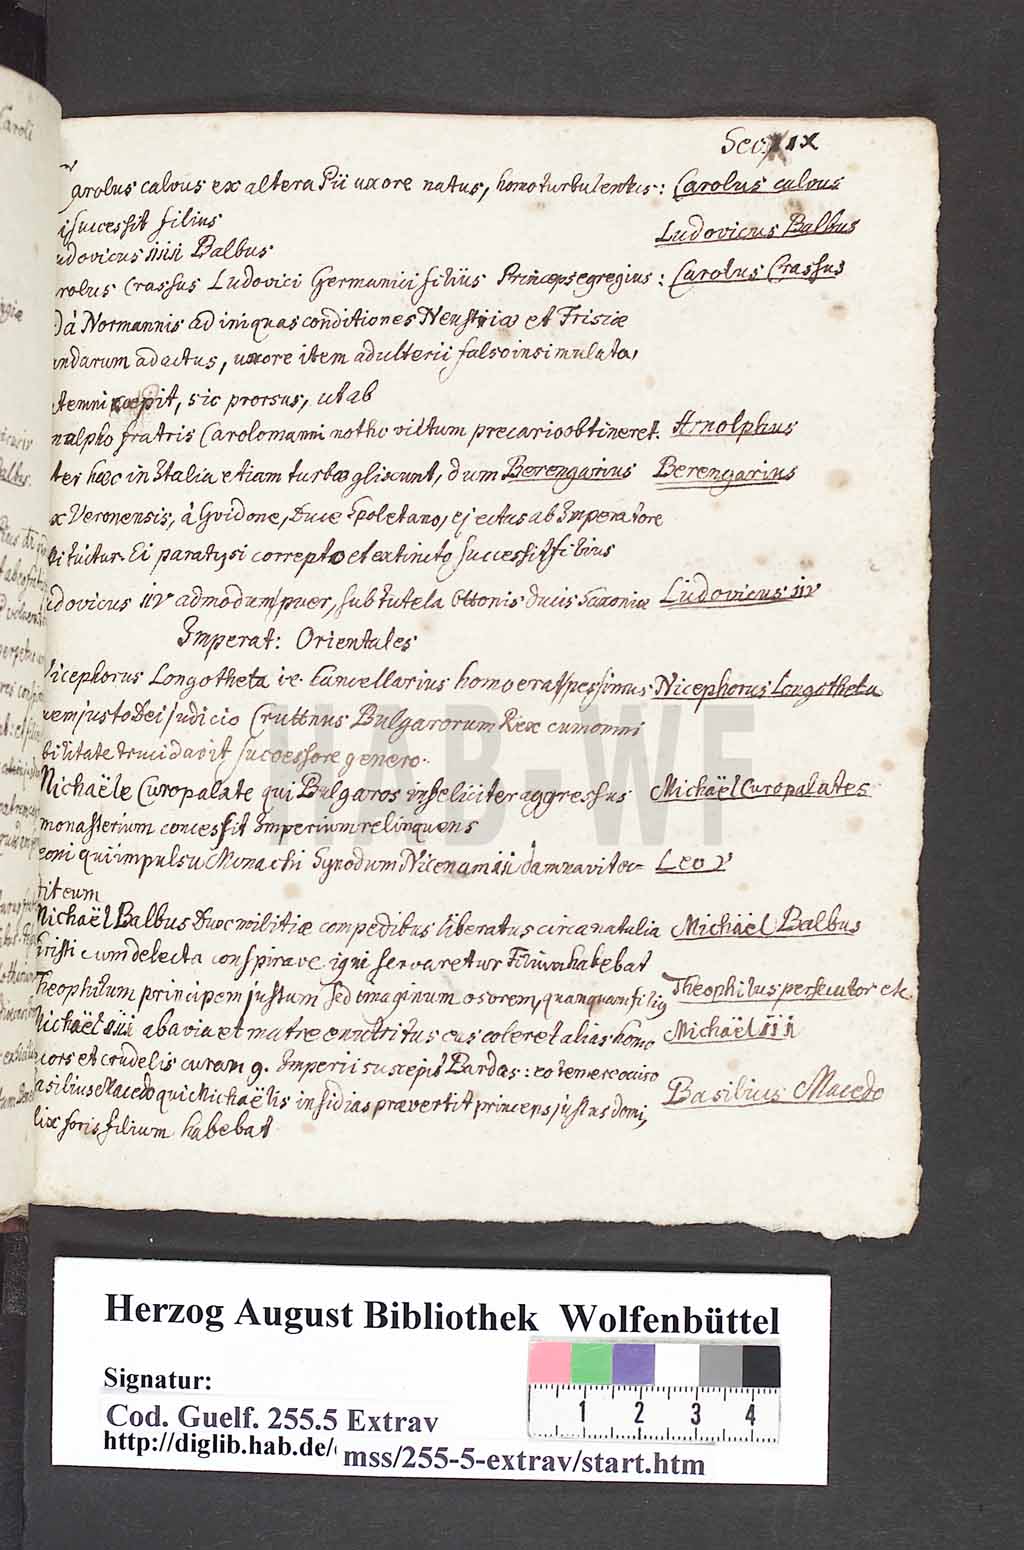 Sec. IX
Carolus calvus ex altera Pii uxore natus, homo turbulentus: Carolus calvus
i successit filius
udovicus iiii Balbus Ludovicus Balbus
rolus Crassus Ludovici Germanici filiis Princeps egregius: Carolus Crassus
d á Normannis ad iniquas conditiones Neustriæ et Frisiæ
andarum adactus, uxore item adulterii falso insimulata,
temni coepit, sic prorsus, ut ab
nalpho fratris Carolomanni notho victum precario obtineret. Arnolphus
ter hæc in Italia etiam turbæ gliscunt, dum Berengarius Berengarius
x Veronensis, á Gvidone, Duce Spoletano, ejectus ab Imperatore
tituitur. Ei paralysi correpto et extincto successit filius
udovicus iiv admodum puer, sub tutela Ottonis ducis Saxoniæ Ludovicus iiv
Imperat: Orientales
Nicephorus Longotheta i e. Cancellarius homo erat pessimus Nicephorus Longotheta
uem justo Dei judicio Cruttnus Bulgarorum Rex cum omni
bilitate trucidavit successore genero.
Michaële Curopalate qui Bulgaros infeliciter aggressus Michaël Curopalates
monasterium concessit Imperium relinquens
eoni qui impulsu Monachi Synodum Nicenam ii damnavit oc= Leo V
tit eum
Michaël Balbus Dux militiæ compedibus liberatus circa natalia Michaël Balbus
hristi cum delecta conspirave igni servaretur Filium habebat
Theophilum principem justum sed imaginum osorem, quanquam filig Theophilus persecutor etc.
Michaël iii ab avia et matre enutritus eas coleret alias homo Michaël iii
cors et crudelis curam g. Imperii suscepit Bardas: eo temere occiso
asilius Macedo qui Michaëlis insidias prævertit princeps justus domi, Basilius Macedo
lix foris filium habebat
HAB-WF
Herzog August Bibliothek Wolfenbüttel
Signatur:
Cod. Guelf. 255.5 Extrav
http://diglib.hab.de/ mss/255-5-extrav/start.htm
1 2 3 4